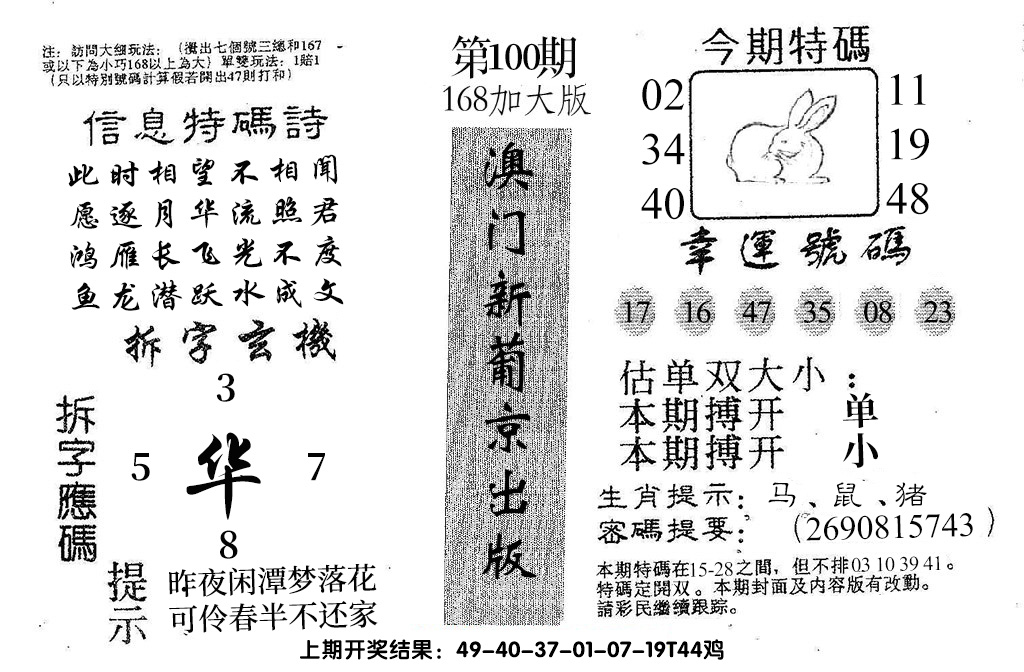 注：訪問大細玩法：（攪出七個號三總和167
或以下為小巧168以上為大）單雙玩法：1賠1
（只以特別號碼計算假若開出47則打和）
信息特碼詩
此时相望不相闻
愿逐月华流照君
鸿雁长飞光不度
鱼龙潜跃水成文
拆字玄機
拆字應碼
3
5 华 7
8
提示
昨夜闲潭梦落花
可伶春半不还家
第100期
168加大版
澳门新葡京出版
今期特碼
02 11
34 19
40 48
幸運號碼
17 16 47 35 08 23
估单双大小：
本期搏开 单
本期搏开 小
生肖提示：马、鼠、猪
密碼提要：（2690815743）
本期特碼在15-28之間，但不排03 10 39 41。
特碼定開双。本期封面及内容版有改動。
請彩民繼續跟踪。
上期开奖结果：49-40-37-01-07-19T44鸡